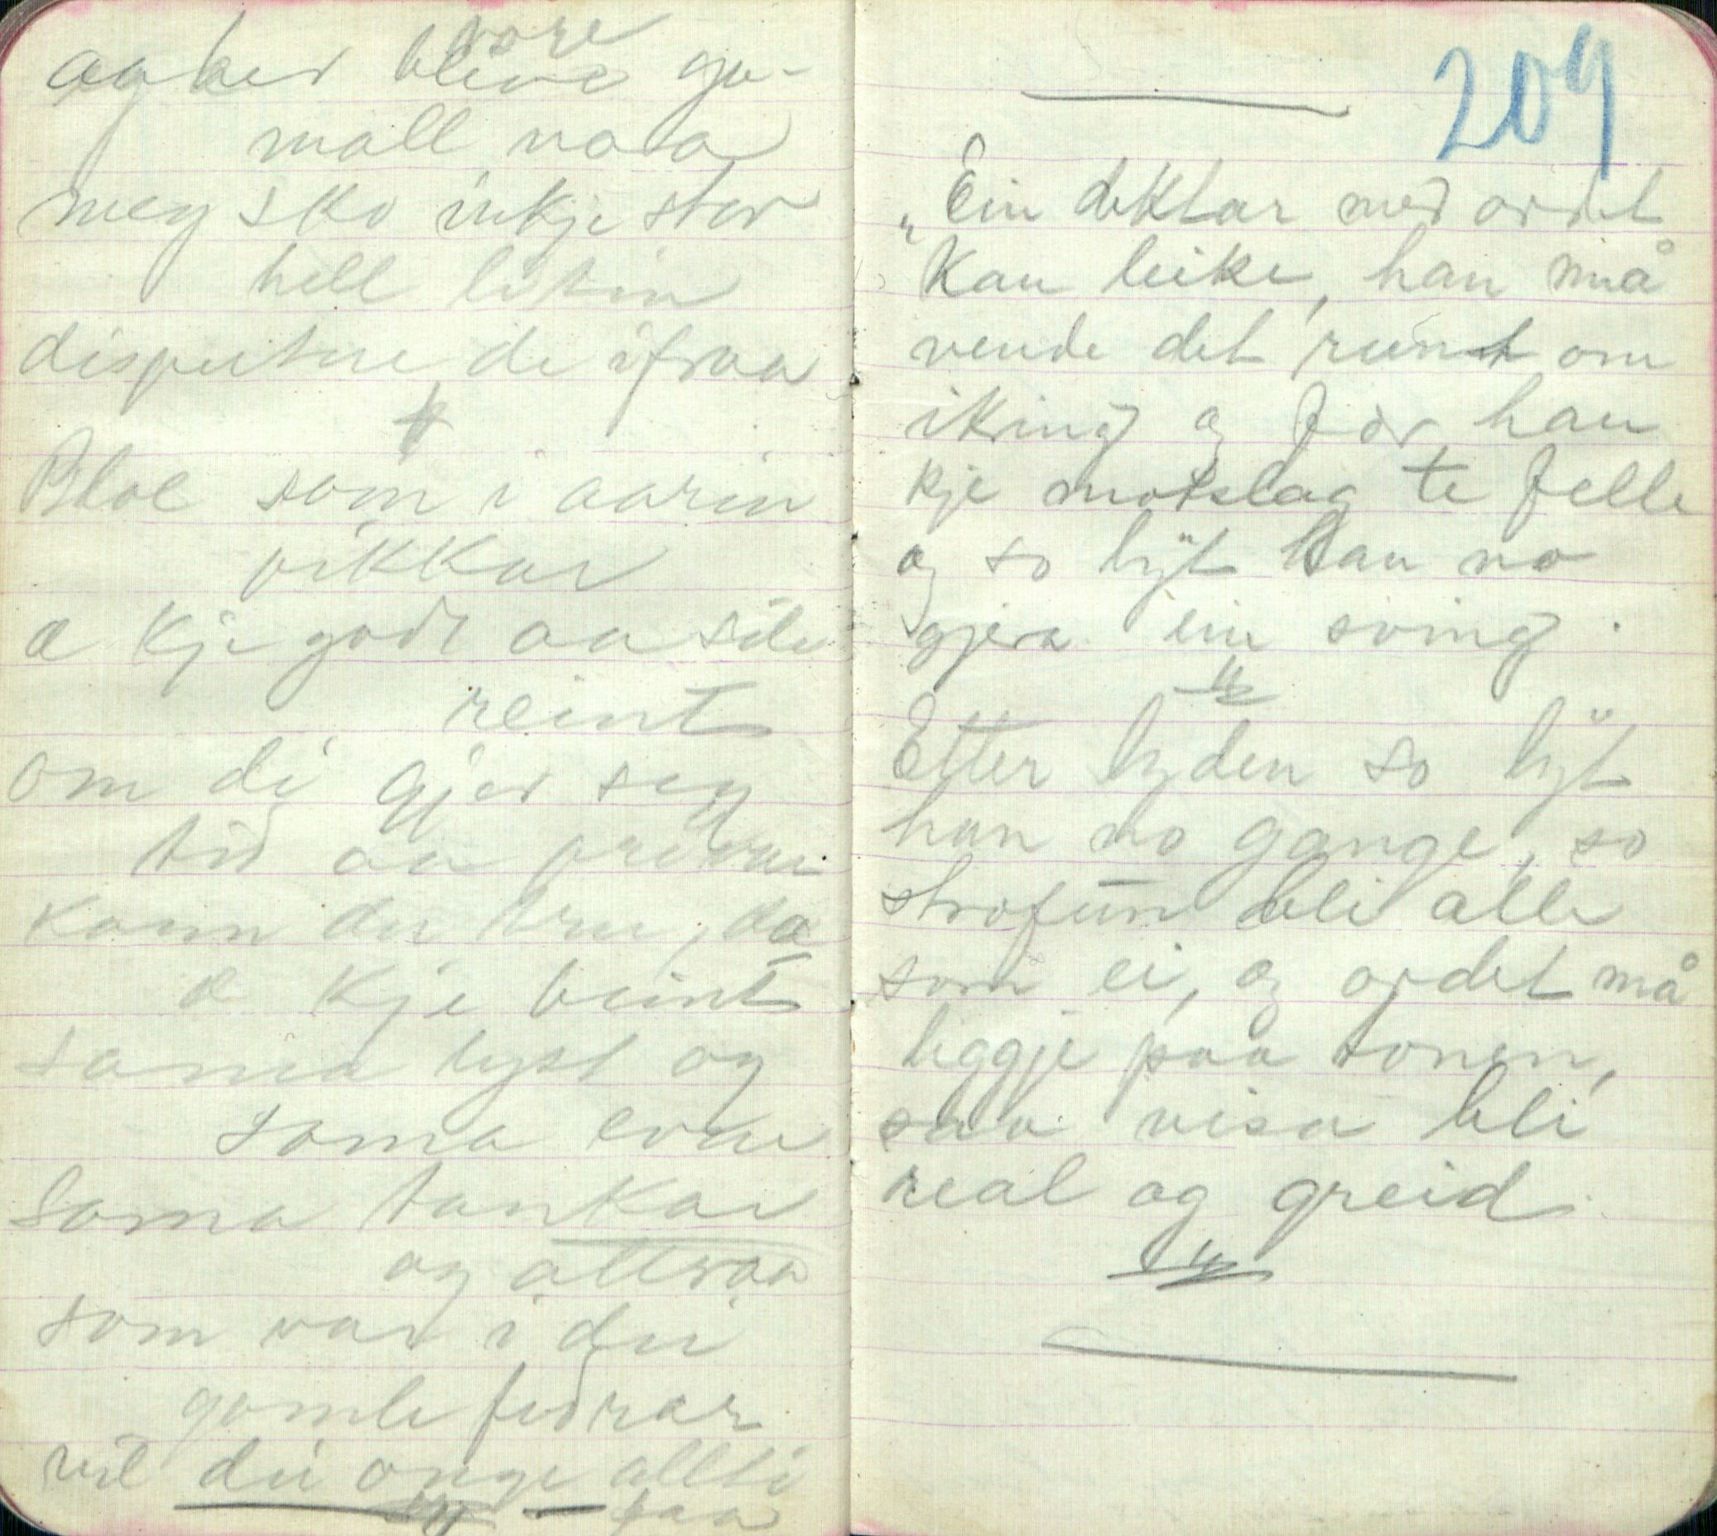 vore
og her blive ga-
mall no a
meg sko inkje stor
hell liten
disputere de ifraa
Bloe som i aarin
pikkar
æ kje godt aa sile
reint
om di gjer seg
tid aa prøvai
kann du tru, da
æ kje beint
sama lyst og
soma evne
soma tankar
og attraa
som var i dei
gomle fedrar
vil dei onge allti
faa
209
"Ein diktar med ordet
kan leike, han må
vende det runt om
ikring og før han
kje motslag te felle
og so lyt han no
gjera ein sving.
Etter lyden so lyt
han no gange, so
strofun bli alle
som ei, og ordet må
liggje paa tonen,
saa visa bli
real og greid.